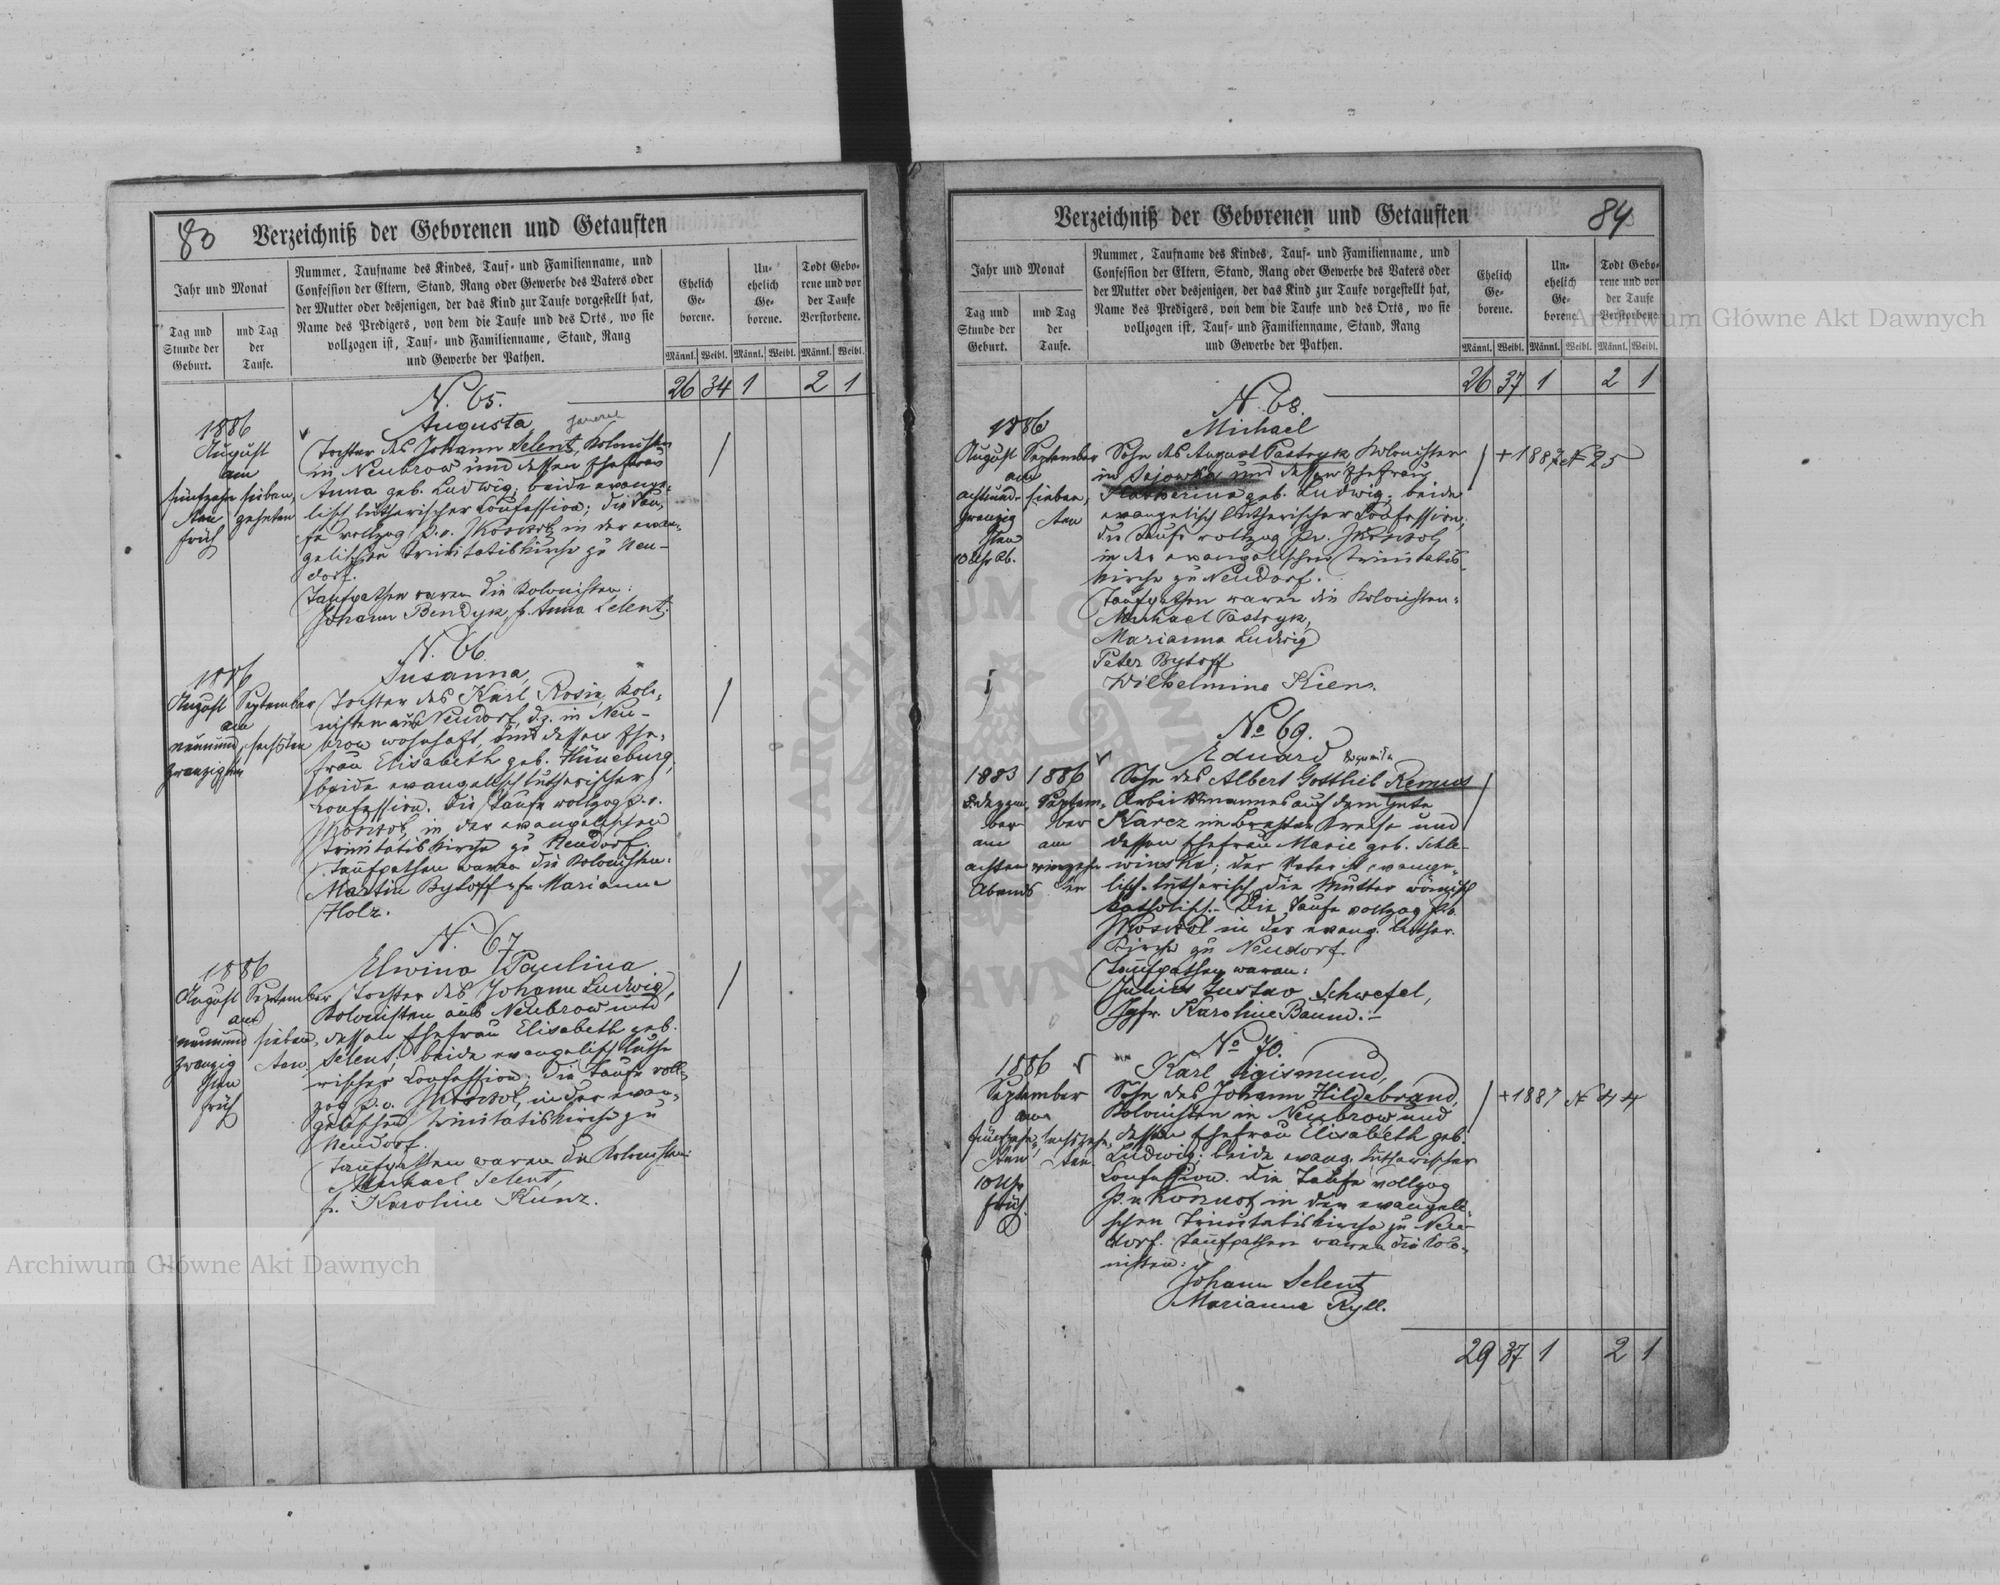 80
Verzeichniß der Geborenen und Getauften
Jahr und Monat
Tag und Stunde der Geburt.
und Tag der Taufe.
Nummer, Taufname des Kindes, Tauf- und Familienname, und
Confession der Eltern, Stand, Rang oder Gewerbe des Vaters oder
der Mutter oder desjenigen, der das Kind zur Taufe vorgestellt hat,
Name des Predigers, von dem die Taufe und des Orts, wo sie
vollzogen ist, Tauf- und Familienname, Stand, Rang
und Gewerbe der Pathen.
Ehelich Geborene.
Unehelich Geborene.
Todt Geborene und vor der Taufe Verstorbene.
Männl. Weibl. Männl. Weibl. Männl. Weibl.
26 34 1 2 1
N. 65.
Augusta
1886
August
am
fünfzehn
ten
früh
sieben,
zehnten
Tochter des Johann Selent, Kolonisten
in Neubrow und dessen Ehefrau
Anna geb. Ludwig; beide evange-
lisch lutherischer Confession; die Tau,
fe vollzog p.v. in der evan-
gelischen Trinitatiskirche zu Neu-
dorf.
Taufpathen waren die Kolonisten:
Johann Bendyk, f. Anna Selent;
N. 66.
Susanna,
1886
August September
am
neunund sechsten
zwanzigsten
Tochter des Karl Rosin, Kolo-
nisten aus Neudorf, d.z. in Neu-
brow wohnhaft, und dessen Ehe-
frau Elisabeth geb. Hüneburg,
beide evangelisch lutherischer
Confession. Die Taufe vollzog p.v.
in der evangelischen
Trinitatiskirche zu Neudorf.
Taufpathen waren die Kolonisten:
Martin Bytoff u. fr. Marianna
Holz.
N. 67
Elwina Paulina
1886
August September
am
neunund sieben,
zwanzig ten
sten
früh
Tochter des Johann Ludwig,
Kolonisten aus Neubrow und
dessen Ehefrau Elisabeth geb.
Selent; beide evangelisch luthe
rischer Confession; die Taufe voll-
zog p.v. in der evan-
gelischen Trinitatiskirche zu
Neudorf.
Taufpathen waren die Kolonisten:
Michael Selent,
fr. Karoline Kunz.
84
Verzeichniß der Geborenen und Getauften
Jahr und Monat
Tag und Stunde der Geburt.
und Tag der Taufe.
Nummer, Taufname des Kindes, Tauf- und Familienname, und
Confession der Eltern, Stand, Rang oder Gewerbe des Vaters oder
der Mutter oder desjenigen, der das Kind zur Taufe vorgestellt hat,
Name des Predigers, von dem die Taufe und des Orts, wo sie
vollzogen ist, Tauf- und Familienname, Stand, Rang
und Gewerbe der Pathen.
Ehelich Geborene.
Unehelich Geborene.
Todt Geborene und vor der Taufe Verstorbene.
Männl. Weibl. Männl. Weibl. Männl. Weibl.
26 37 1 2 1
N. 68.
Michael
1886
August September
am
achtund- sieben,
zwanzig ten
sten
10 Uhr Ab.
Sohn des August Pastryk Kolonisten
in und dessen Ehefrau
Katharina geb. Ludwig; beide
evangelisch lutherischer Confession;
die Taufe vollzog Pv.
in der evangelischen Trinitatis-
kirche zu Neudorf.
Taufpathen waren die Kolonisten:
Michael Pastryk,
Marianna Ludwig
Peter Bytoff
Wilhelmine Kien.
+ 1887 N 25
No 69.
Eduard
1883 1886
Dezem- Septem-
ber ber
am am
achten vierzehn
Abends ten
Sohn des Albert Gottlieb Remus
Arbeitsmannes auf dem Gute
Karcz im Brester Kreise und
dessen Ehefrau Marie geb. Schle-
winska; der Vater ist evange-
lisch-lutherisch, die Mutter römisch
katholisch.- Die Taufe vollzog Pv.
in der evang. luther.
Kirche zu Neudorf.
Taufpathen waren:
Julius Gustav Schwefel,
Jgfr. Karoline Baum.-
No 70.
Karl Sigismund,
1886
September
am
fünfzehn, sechszehn,
ten ten
10 Uhr
früh
Sohn des Johann Hildebrand,
Kolonisten in Neubrow und
dessen Ehefrau Elisabeth geb.
Ludwig; beide evang. lutherischer
Confession. Die Taufe vollzog
P.v. in der evangeli-
schen Trinitatiskirche zu Neu-
dorf. Taufpathen waren die Kolo-
nisten:
Johann Selent
Marianna Ryll.
+ 1887 N 44
29 37 1 2 1
Archiwum Główne Akt Dawnych
Archiwum Główne Akt Dawnych